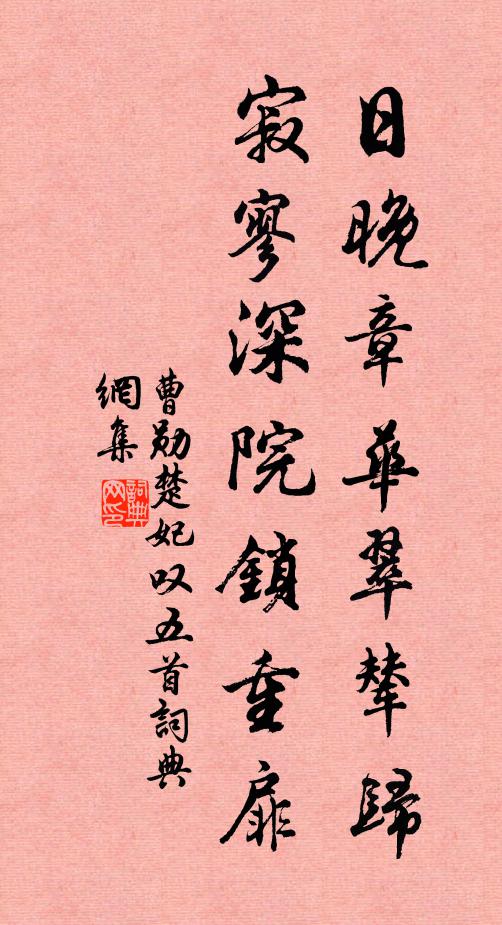 日晚章華翠輦歸
寂寥深院鎖重扉
曹勛楚妃叹五首詞典
網集
詞典
网印